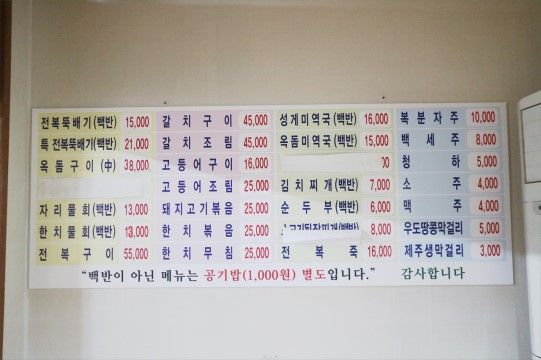 전복뚝배기(백반) 15,000
특전복뚝배기(백반) 21,000
옥돔구이(中) 38,000
자리물회(백반) 13,000
한치물회(백반) 13,000
전복구이 55,000
갈치구이 45,000
갈치조림 45,000
고등어구이 16,000
고등어조림 25,000
돼지고기볶음 25,000
한치볶음 25,000
한치무침 25,000
성게미역국(백반) 16,000
옥돔미역국(백반) 15,000
김치찌개(백반) 7,000
순두부(백반) 6,000
8,000
전복죽 16,000
복분자주 10,000
백세주 8,000
청하 5,000
소주 4,000
맥주 4,000
우도땅콩막걸리 5,000
제주생막걸리 3,000
"백반이 아닌 메뉴는 공기밥(1,000원) 별도입니다." 감사합니다